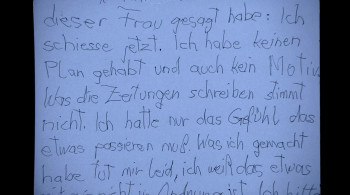 dieser Frau gesagt habe: Ich
schiesse jetzt. Ich habe keinen
Plan gehabt und auch kein Motiv.
Was die Zeitungen schreiben stimmt
nicht. Ich hatte nur das Gefühl das
etwas passieren muß. Was ich gemacht
habe tut mir leid, ich weiß das etwas